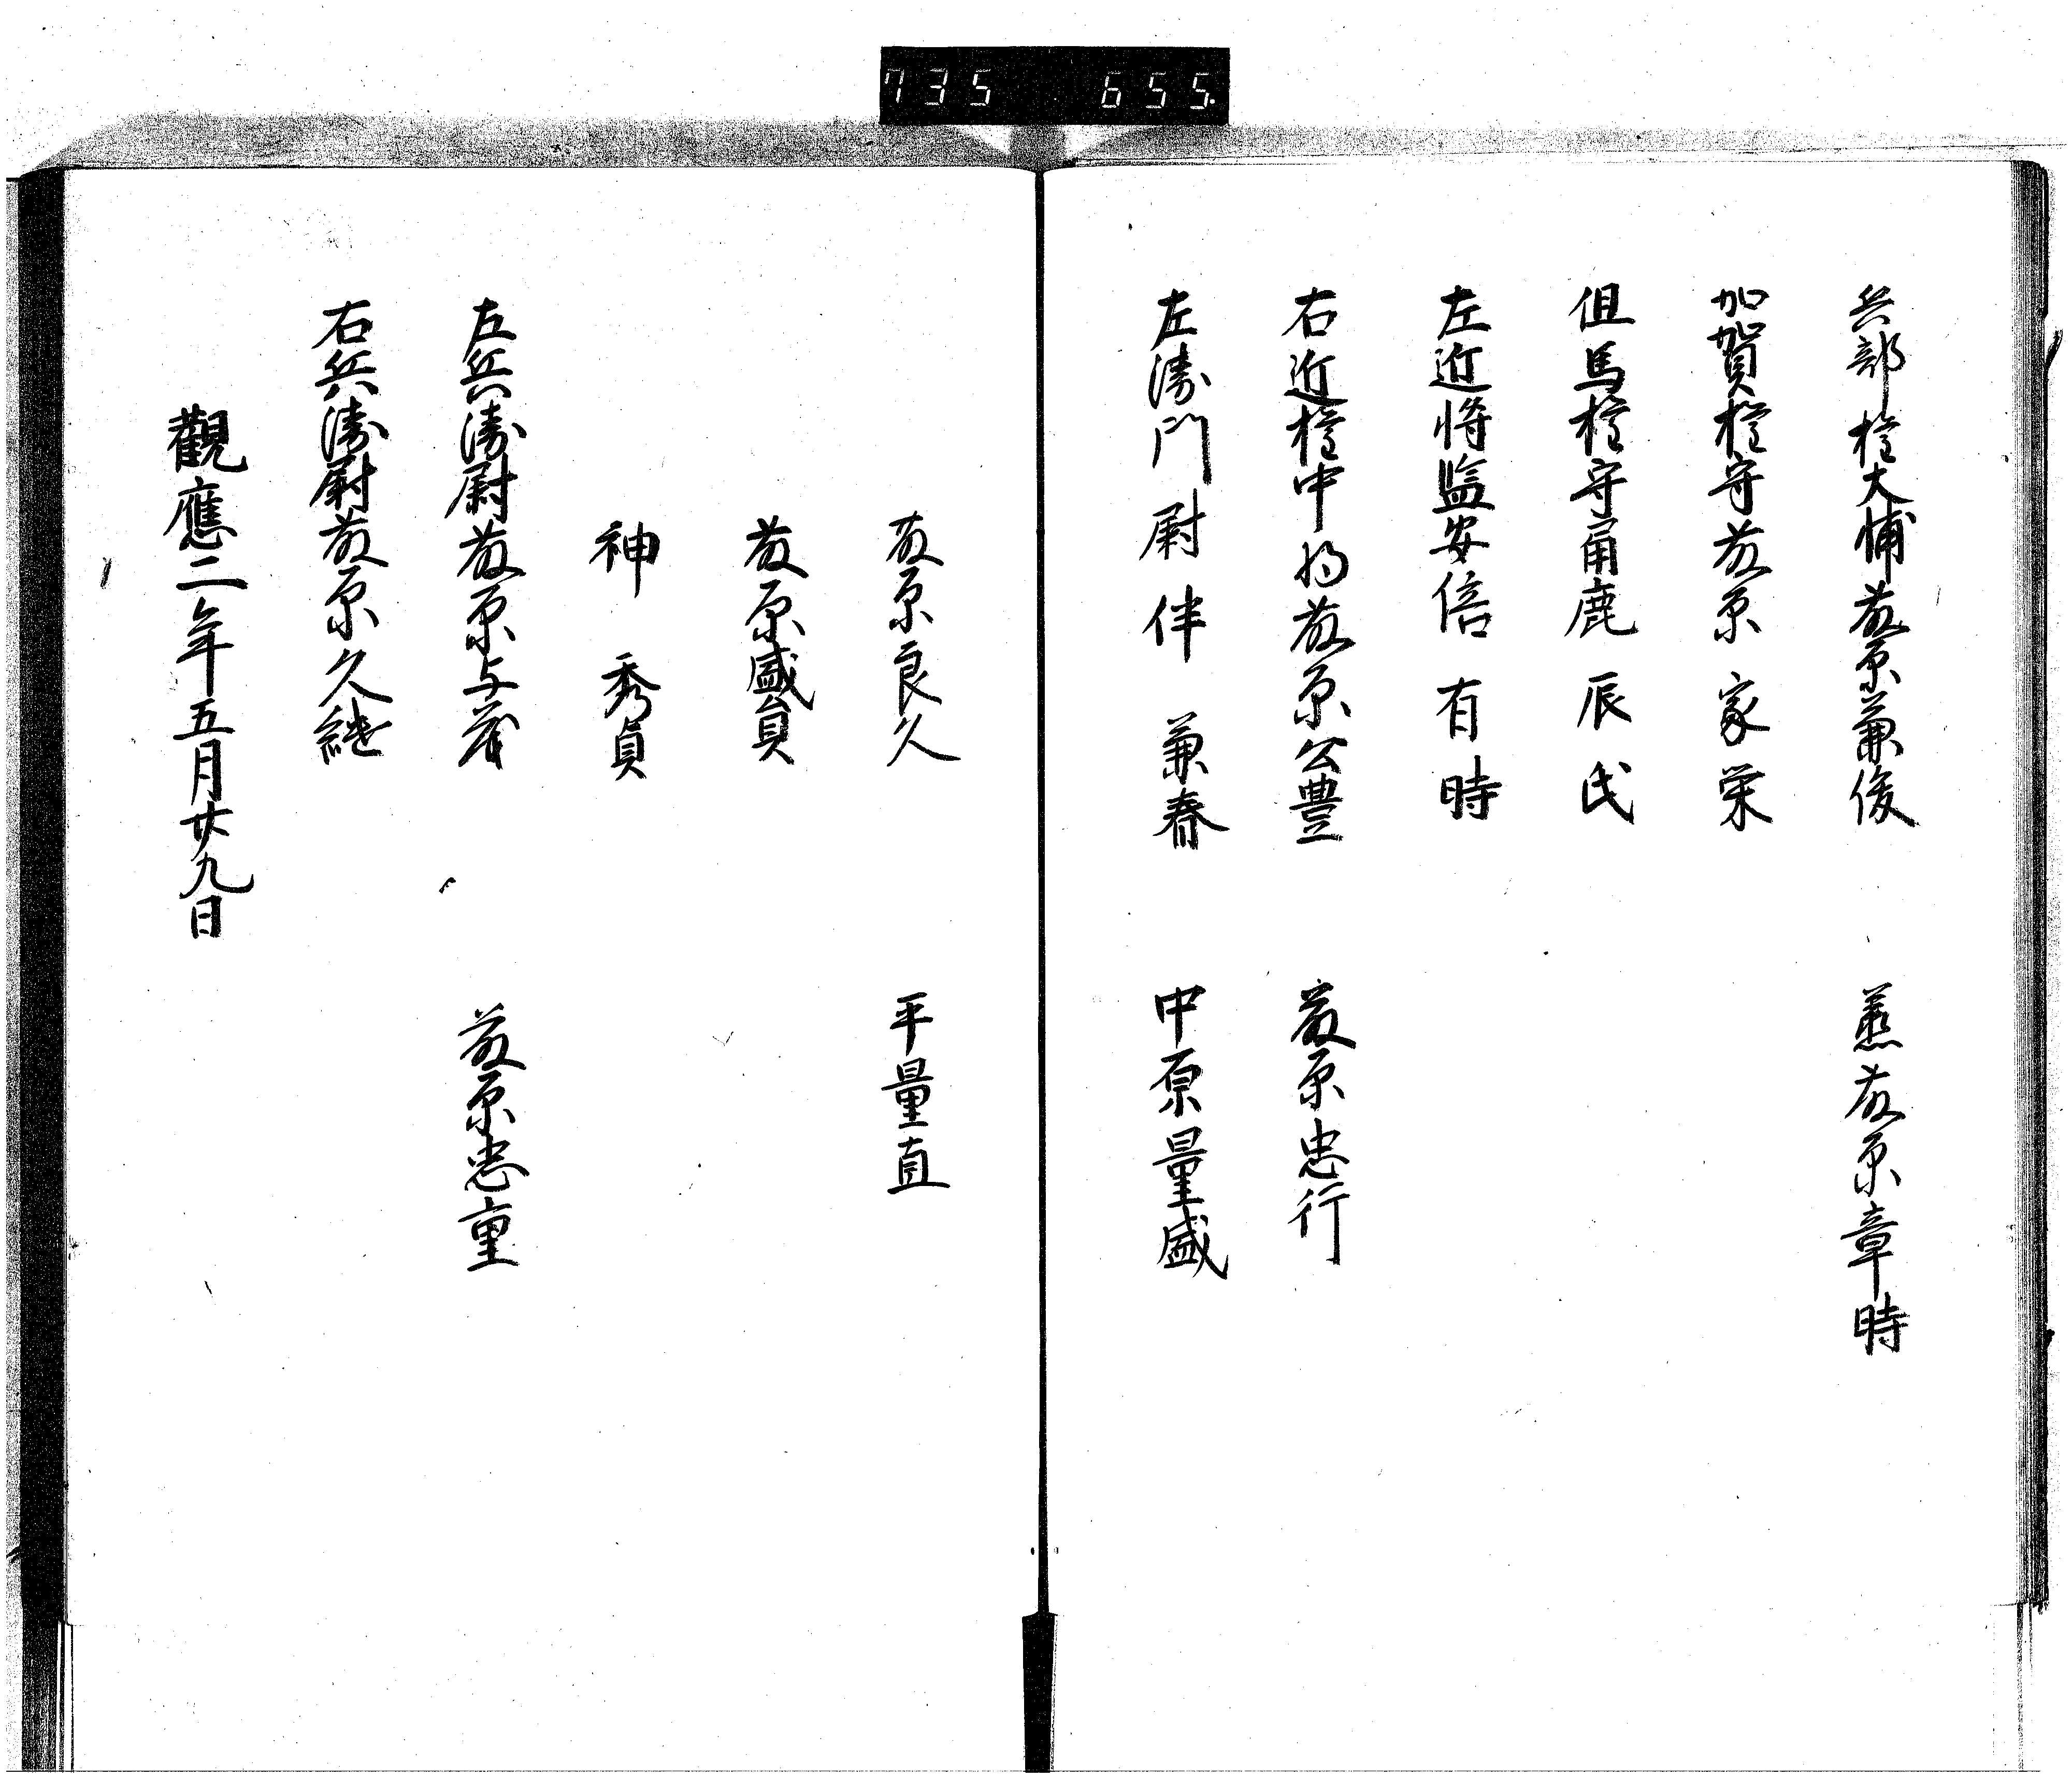 735 655
兵部権大輔藤原兼俊 兼藤原章時
加賀権守藤原家栄
但馬権守角鹿辰氏
左近将監安倍有時
右近権中将藤原公豊 藤原忠行
左衛門尉伴兼春 中原量盛
藤原良久 平量直
藤原盛員
神秀貞
左兵衛尉藤原与 藤原忠重
右兵衛尉藤原久継
觀應二年五月廿九日